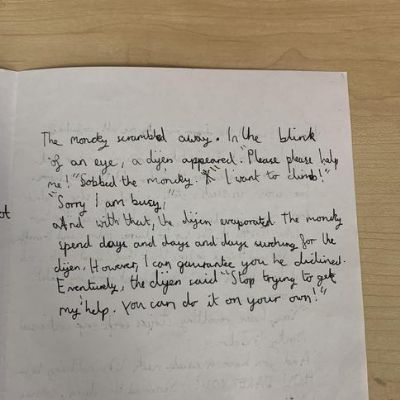 The moncky scrambled away. In the blink
of an eye, a dijen appeared. "Please please help
me!" Sobbed the moncky. "I want to climb!"
"Sorry I am busy,"
aAnd with that, the dijen evaporated The moncky
spend days and days and days surching for the
dijen. However, I can gaurantee you he declined.
Eventurely, the dijen said "Stop trying to get
my help. You can do it on your own!"
ot